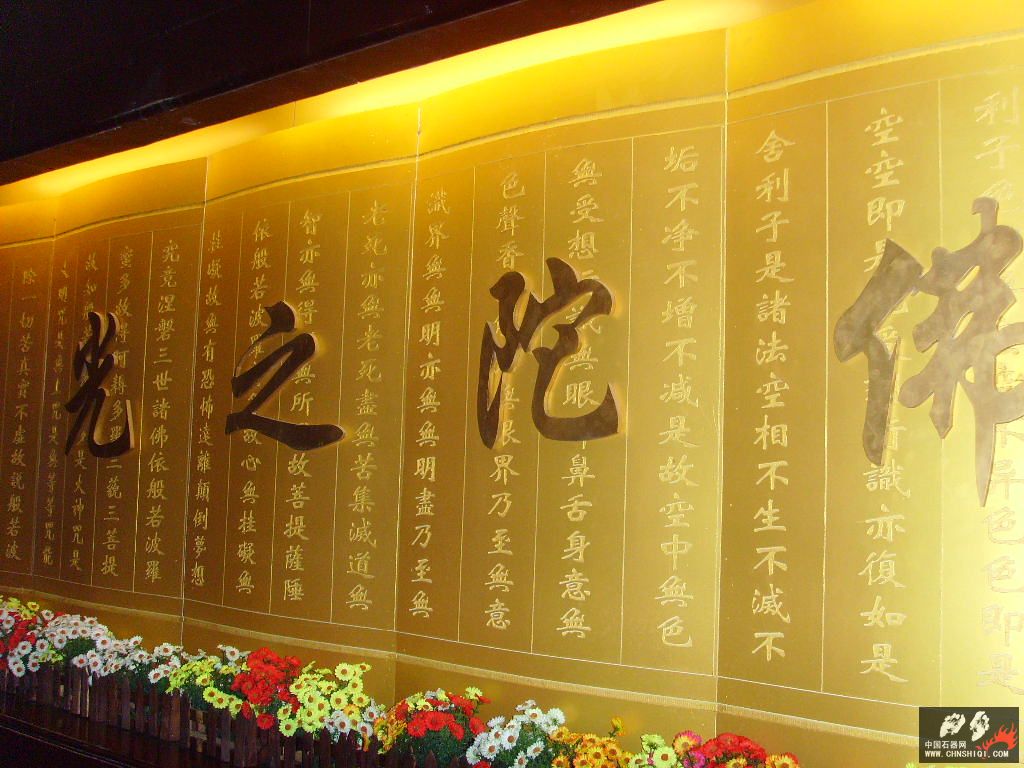 佛陀之光
利子色不異色色即是
空空即是識亦復如是
舍利子是諸法空相不生不滅不
垢不净不增不減是故空中無色
無受想無眼鼻舌身意無
色聲香眼界乃至無意
識界無無明亦無無明盡乃至無
老死亦無老死盡無苦集滅道無
智亦無得無所故菩提薩埵
依般若波故心無桂礙無
礙故無有恐怖遠離顛倒夢想
究竟涅磐三世諸佛依般若波羅
蜜多故阿耨多羅三藐三菩提
故知是大神咒是
明咒是無上咒是無等等咒能
除一切苦真實不虛故說般若波
中国石器网
WWW.CHNSHIQI.COM